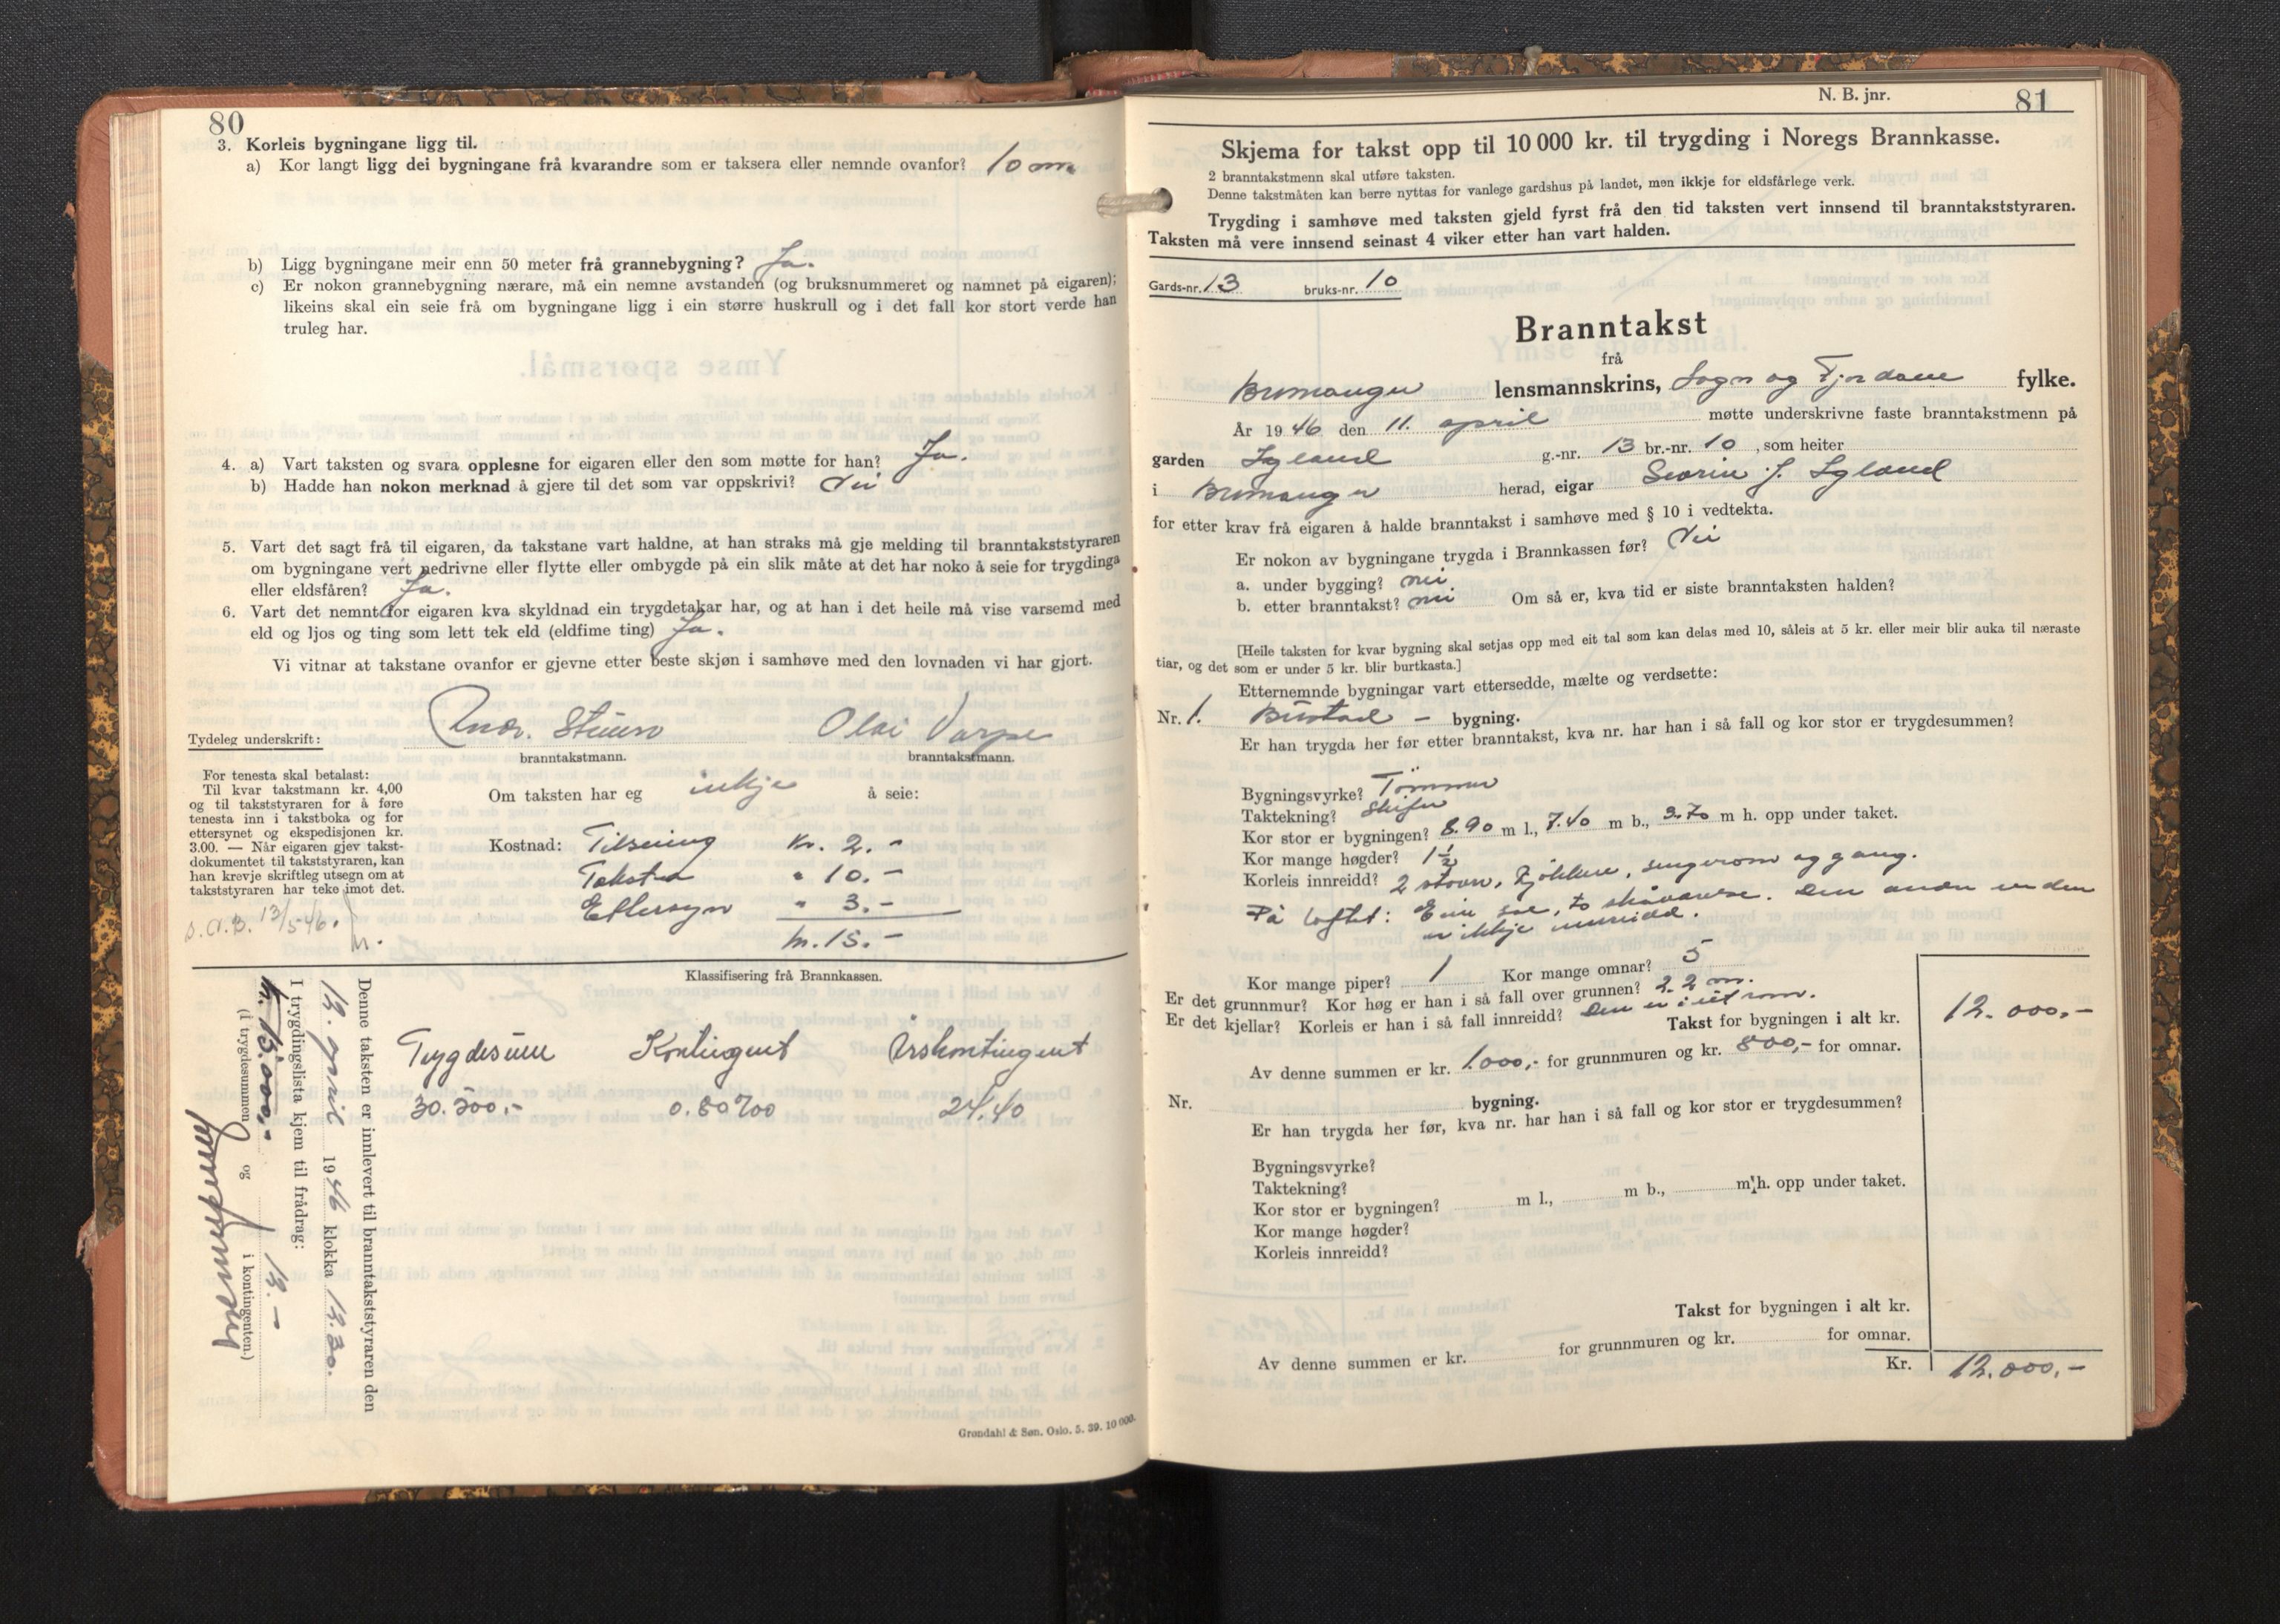 80
3. Korleis bygningane ligg til.
a) Kor langt ligg dei bygningane frå kvarandre som er taksera eller nemnde ovanfor? 10 m.
b) Ligg bygningane meir enn 50 meter frå grannebygning? Ja.
c) Er nokon grannebygning nærare, må ein nemne avstanden (og bruksnummeret og namnet på eigaren);
likeins skal ein seie frå om bygningane ligg i ein større huskrull og i det fall kor stort verde han
truleg har.
4. a) Vart taksten og svara opplesne for eigaren eller den som møtte for han? Ja.
b) Hadde han nokon merknad å gjere til det som var oppskrivi? Nei
5. Vart det sagt frå til eigaren, da takstane vart haldne, at han straks må gje melding til branntakststyraren
om bygningane vert nedrivne eller flytte eller ombygde på ein slik måte at det har noko å seie for trygdinga
eller eldsfåren? Ja.
6. Vart det nemnt for eigaren kva skyldnad ein trygdetakar har, og at han i det heile må vise varsemd med
eld og ljos og ting som lett tek eld (eldfime ting) Ja.
Vi vitnar at takstane ovanfor er gjevne etter beste skjøn i samhøve med den lovnaden vi har gjort.
Tydeleg underskrift: Olai Varpe
branntakstmann. branntakstmann.
For tenesta skal betalast:
Til kvar takstmann kr. 4,00
og til takststyraren for å føre
tenesta inn i takstboka og for
ettersynet og ekspedisjonen kr.
3.00. — Når eigaren gjev takst-
dokumentet til takststyraren, kan
han krevje skriftleg utsegn om at
takststyraren har teke imot det.
Om taksten har eg inkje å seie:
Kostnad: Tilseiing Kr. 2.-
Taksten " 10.-
Ettersyn " 3.-
kr. 15.-
13/5-46.
Klassifisering frå Brannkassen.
Trygdesum Kontingent Årskontingent
30.500,- 0.80 ‰ 24.40
Denne taksten er innlevert til branntakststyraren den
13. april 1946 klokka 13.30.
I trygdingslista kjem til frådrag:
(i trygdesummen og i kontingenten.)
Grøndahl & Søn. Oslo. 5. 39. 10 000.
N. B. jnr.
81
Skjema for takst opp til 10 000 kr. til trygding i Noregs Brannkasse.
2 branntakstmenn skal utføre taksten.
Denne takstmåten kan berre nyttas for vanlege gardshus på landet, men ikkje for eldsfårlege verk.
Trygding i samhøve med taksten gjeld fyrst frå den tid taksten vert innsend til branntakststyraren.
Taksten må vere innsend seinast 4 viker etter han vart halden.
Gards-nr. 13 bruks-nr. 10
Branntakst
frå
Bremanger lensmannskrins, Sogn og Fjordane fylke.
År 1946 den 11. april møtte underskrivne faste branntakstmenn på
garden Igland g.-nr. 13 br.-nr. 10, som heiter
i Bremanger herad, eigar Severin J. Igland
for etter krav frå eigaren å halde branntakst i samhøve med § 10 i vedtekta.
Er nokon av bygningane trygda i Brannkassen før? Nei
a. under bygging? nei
b. etter branntakst? nei Om så er, kva tid er siste branntaksten halden?
[Heile taksten for kvar bygning skal setjas opp med eit tal som kan delas med 10, såleis at 5 kr. eller meir blir auka til næraste
tiar, og det som er under 5 kr. blir burtkasta.]
Etternemnde bygningar vart ettersedde, mælte og verdsette:
Nr. 1. Bustad - bygning.
Er han trygda her før etter branntakst, kva nr. har han i så fall og kor stor er trygdesummen?
Bygningsvyrke? Tømmer
Taktekning? Skifer
Kor stor er bygningen? 8.90 m l., 7.40 m b., 3.70 m h. opp under taket.
Kor mange høgder? 1 1/2
Korleis innreidd? 2 stover, kjøkken, sengerom og gang.
På loftet: Eine sal, to skåvanse. Den andre enden
er ikkje innreidd.
Kor mange piper? 1 Kor mange omnar? 5
Er det grunnmur? Kor høg er han i så fall over grunnen? 2.2 m.
Er det kjellar? Korleis er han i så fall innreidd? Den er i eit rom.
Takst for bygningen i alt kr. 12.000,-
Av denne summen er kr. 1.000,- for grunnmuren og kr. 800,- for omnar.
Nr. bygning.
Er han trygda her før, kva nr. har han i så fall og kor stor er trygdesummen?
Bygningsvyrke?
Taktekning?
Kor stor er bygningen? m l., m b., m h. opp under taket.
Kor mange høgder?
Korleis innreidd?
Takst for bygningen i alt kr.
Av denne summen er kr. for grunnmuren og kr. for omnar.
Kr. 12.000,-